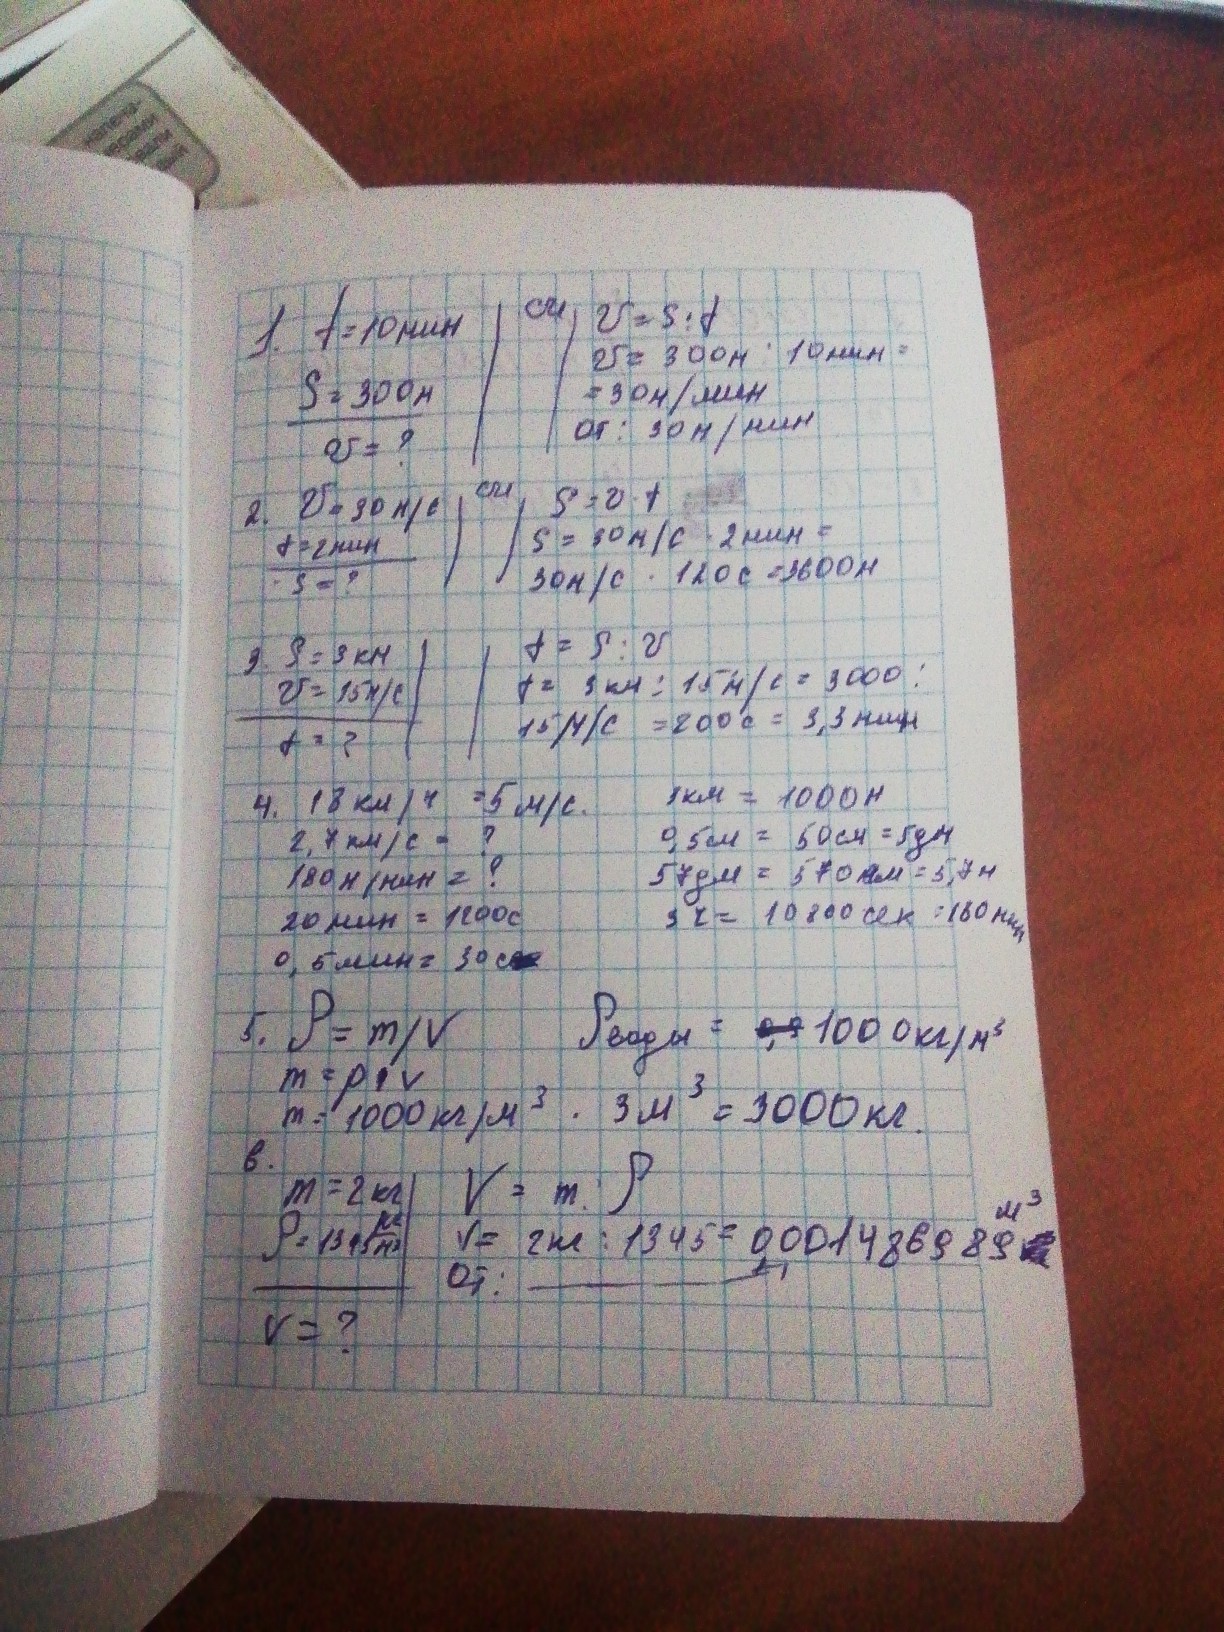 1. t=10мин
S=300м
v=?
си
v=S:t
v=300м:10мин=
=30м/мин
От: 30м/мин
2. v=30м/с
t=2мин
S=?
си
S=v·t
S=30м/с·2мин=
30м/с·120с=3600м
3. S=3км
v=15м/с
t=?
t=S:v
t=3км:15м/с=3000:
15м/с=200с=3,3мин
4. 18км/ч=5м/с.
2,7км/с=?
180м/мин=?
20мин=1200с
0,5мин=30с
1км=1000м
0,5м=50см=5дм
57дм=570см=5,7м
3ч=10800сек=180мин
5. ρ=m/V
ρводы=1000кг/м³
m=ρ·v
m=1000кг/м³·3м³=3000кг.
6.
m=2кг
ρ=1345кг/м³
v=?
V=m:ρ
v=2кг:1345=0,001486989м³
От: